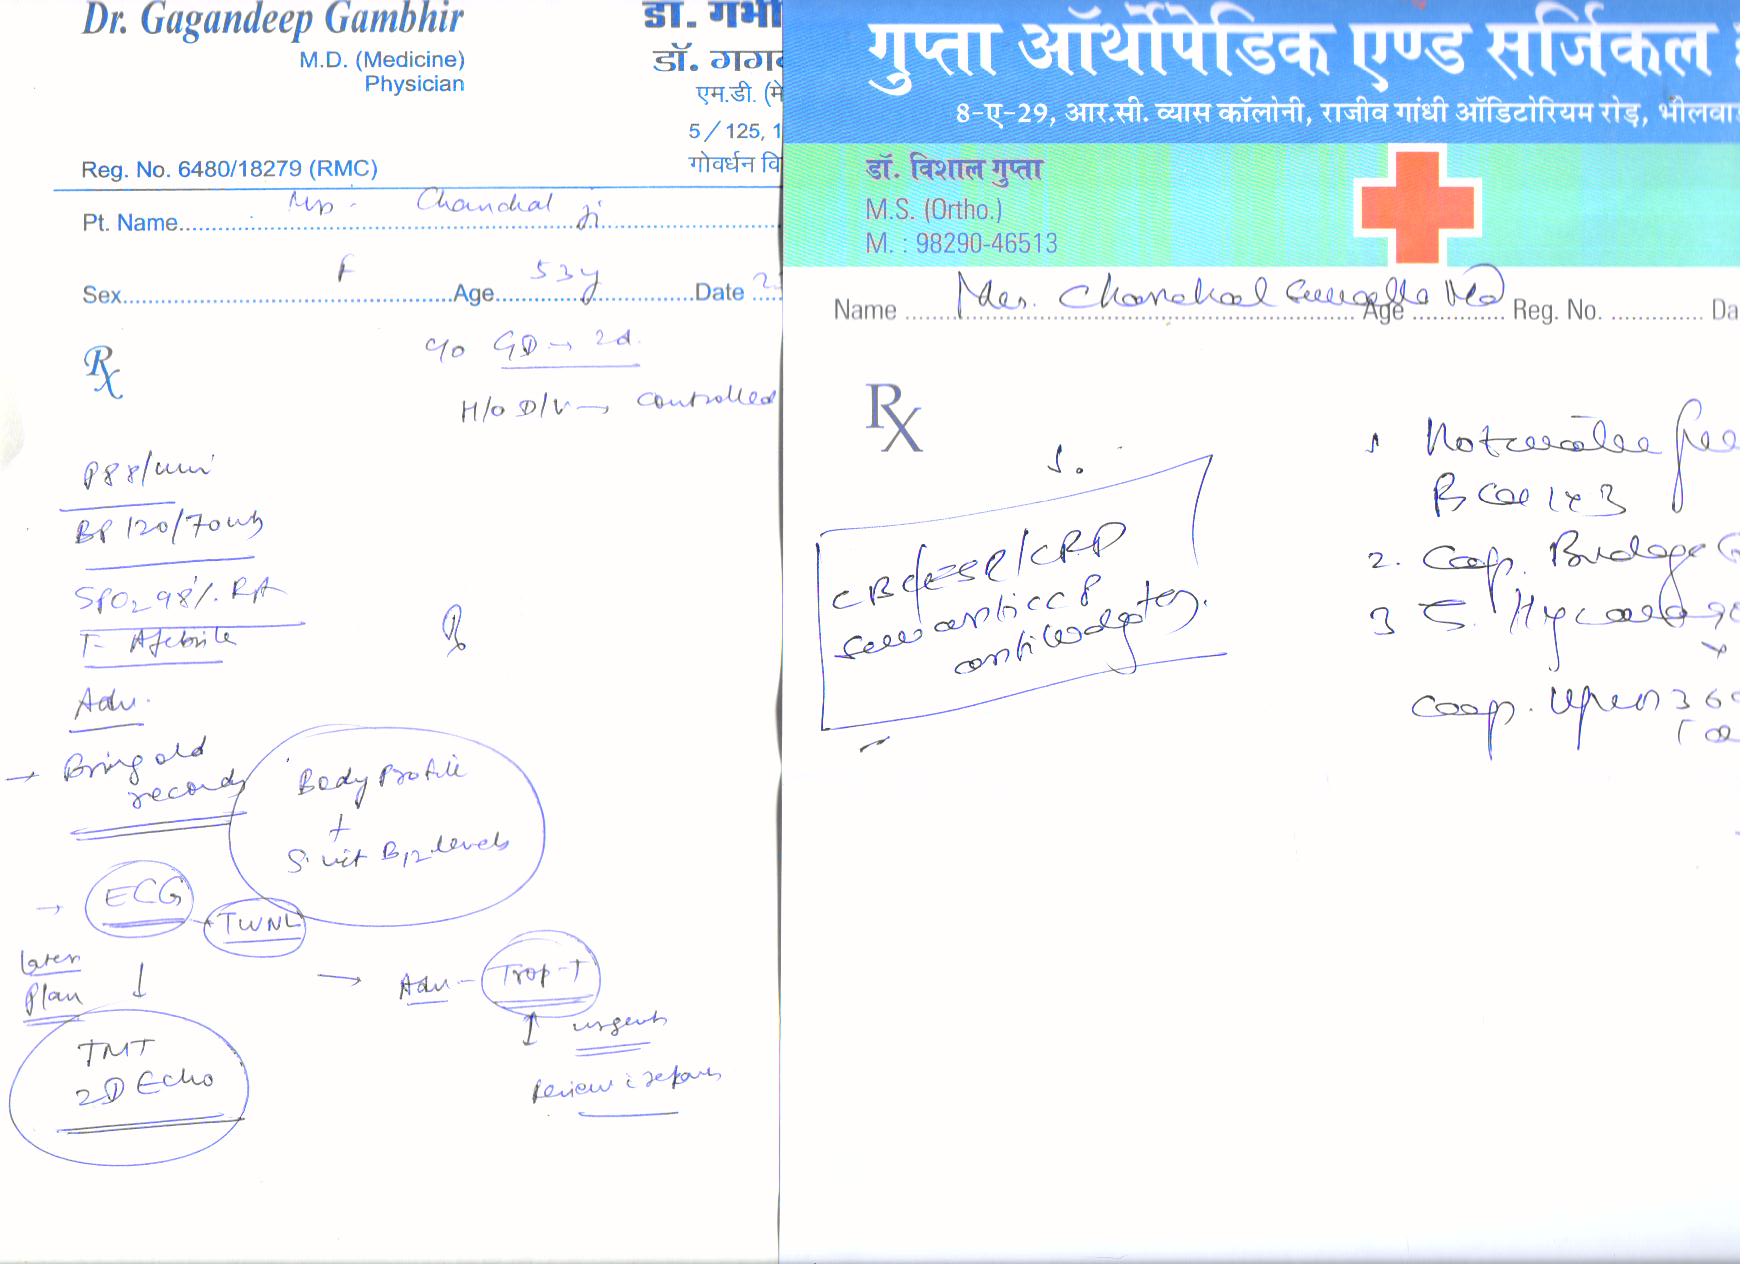 Dr. Gagandeep Gambhir
M.D. (Medicine)
Physician
Reg. No. 6480/18279 (RMC)
डा. गभी
डॉ. गग
एम.डी. (मे
5/125, 1
गोवर्धन वि
Pt. Name Mrs. Chanchal Ji
Sex F Age 53y Date 2
Rx
c/o GD → 2d.
H/o D/V → controlled
P 88/min
BP 120/70
SPO2 98% RA
T- Afebrile
Adv.
→ Bring old
records
Body Profile
+
S. vit B12 levels
→ ECG → TWNL
Later
Plan
↓
TMT
2D Echo
→ Adv - Trop-T
urgent
review c reports
गुप्ता ऑर्थोपेडिक एण्ड सर्जिकल
8-ए-29, आर.सी. व्यास कॉलोनी, राजीव गांधी ऑडिटोरियम रोड़, भीलवा
डॉ. विशाल गुप्ता
M.S. (Ortho.)
M. : 98290-46513
Name Mrs. Chanchal Age Reg. No. Da
Rx
CBC/ESR/CRP
anti CCP
1
1x3
2. Cap.
3
Cap. 360